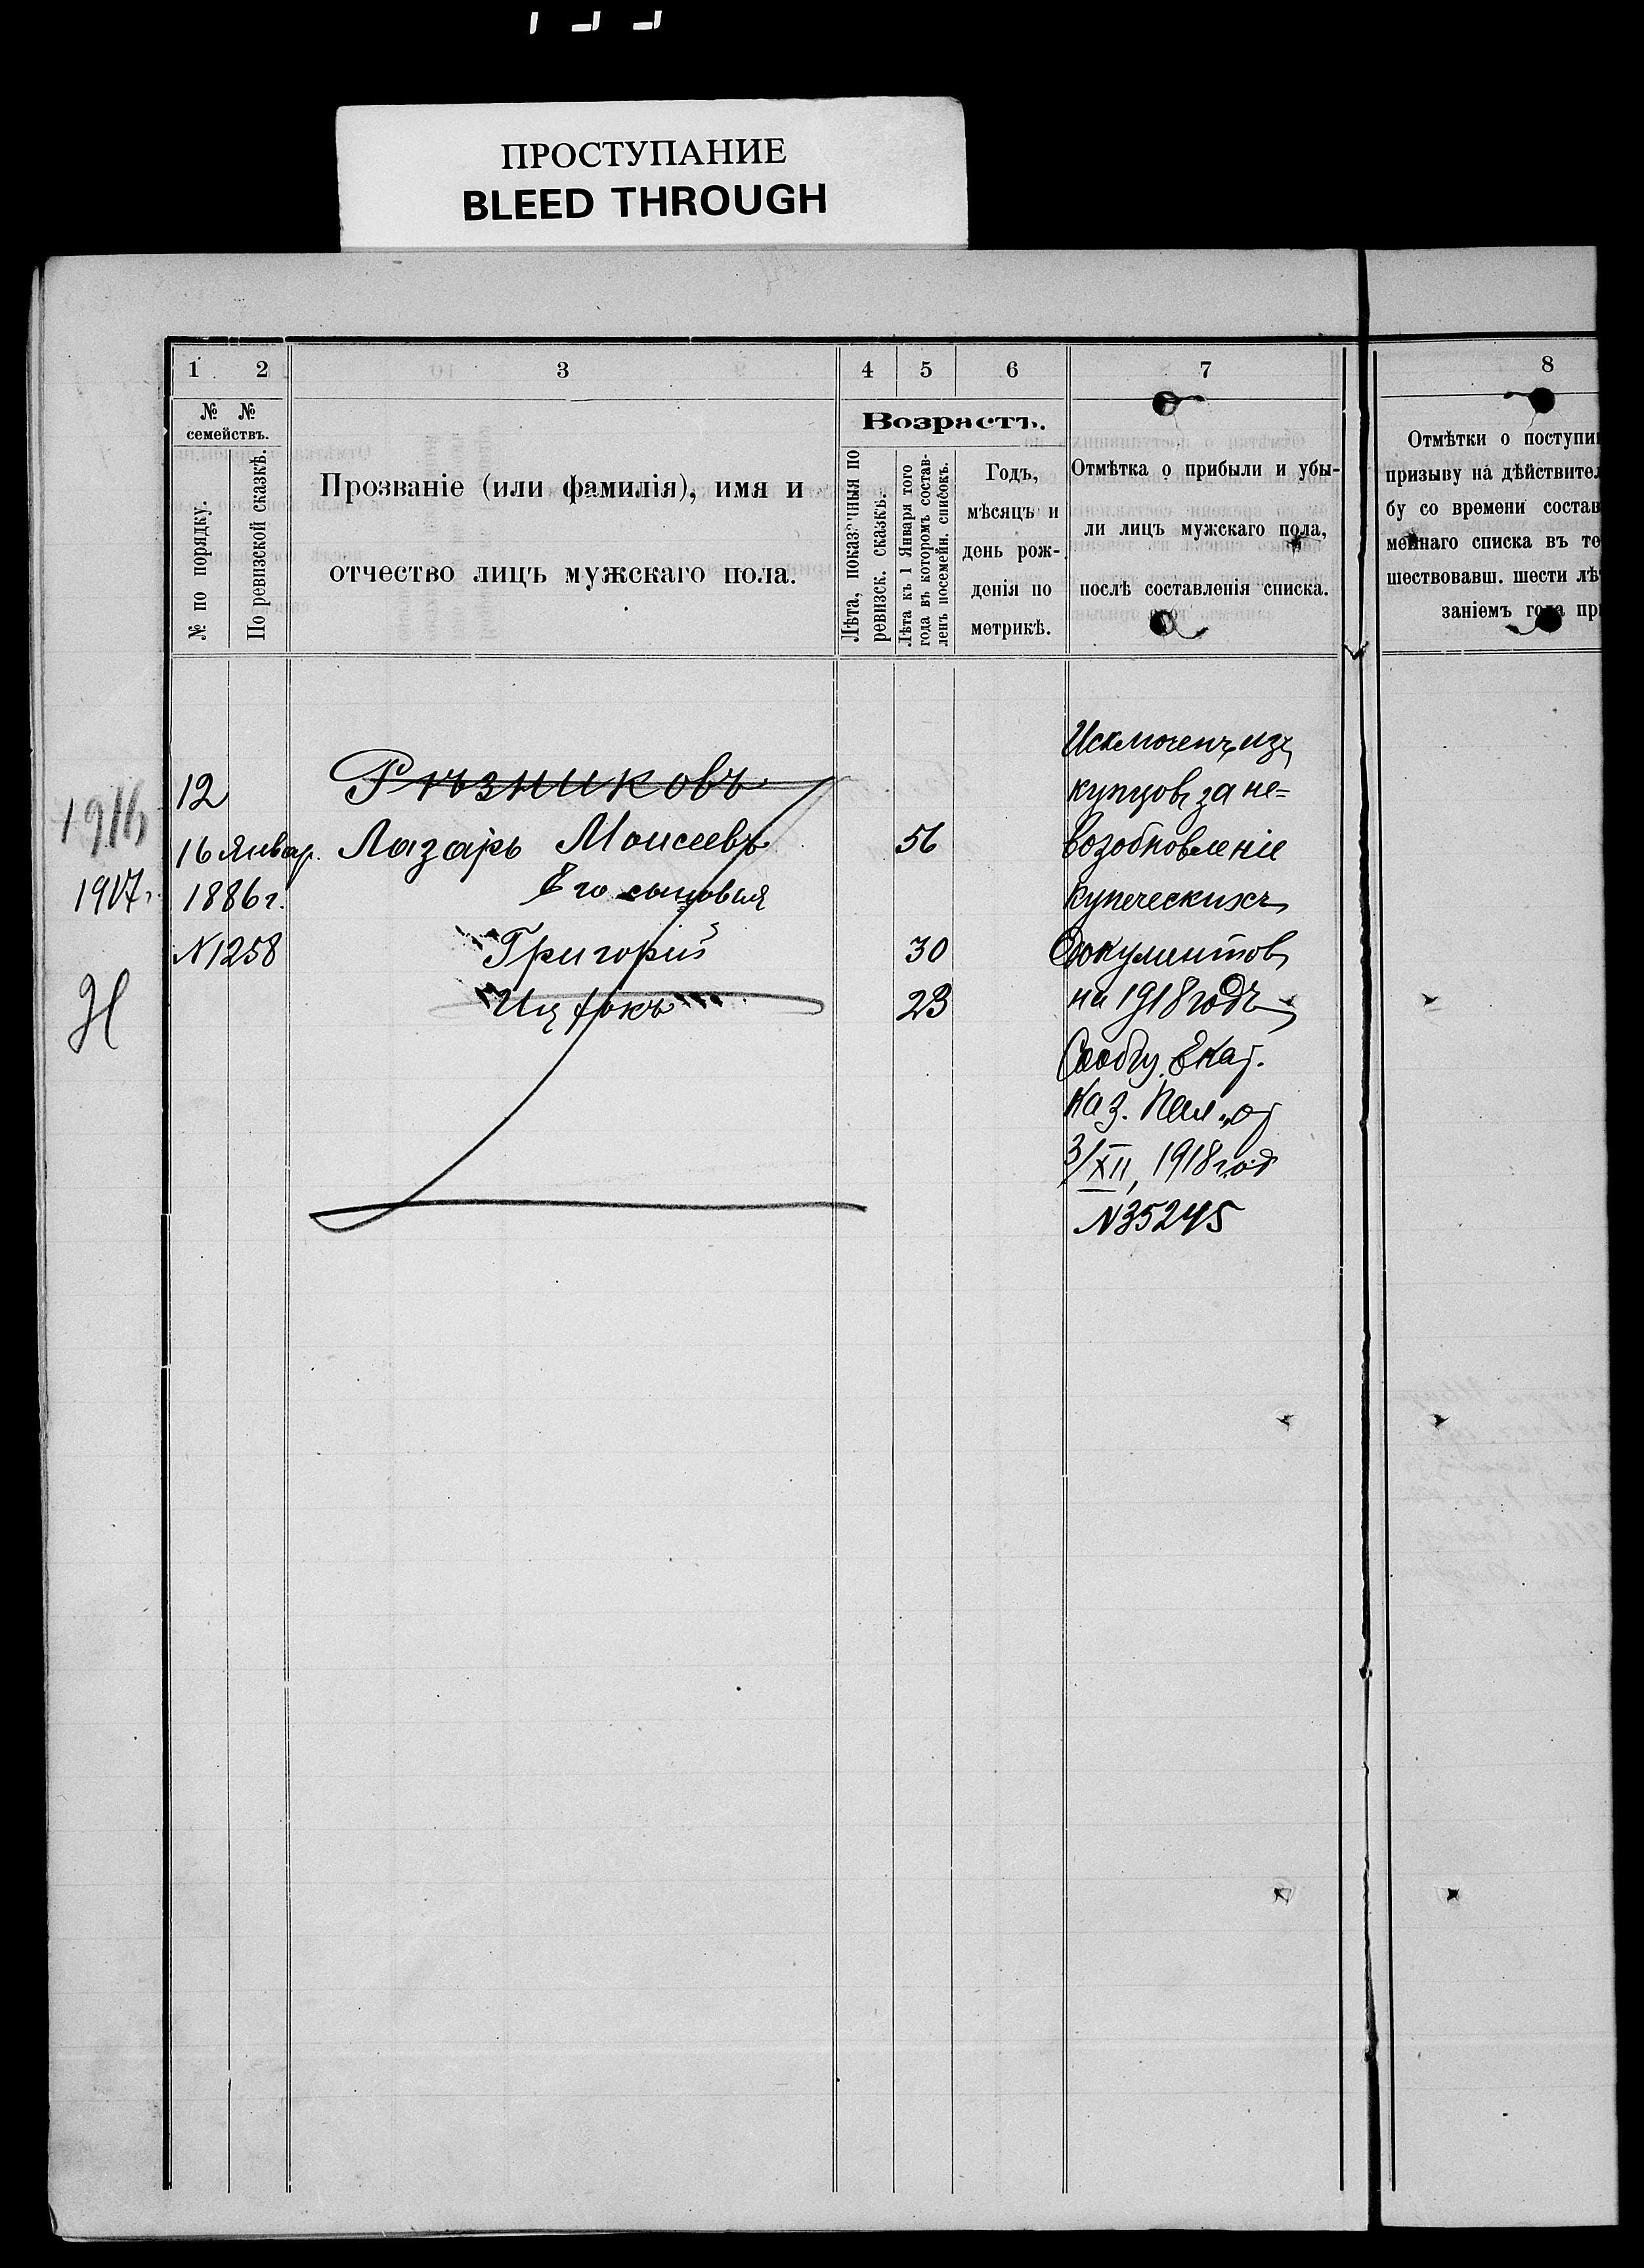 ПРОСТУПАНИЕ
BLEED THROUGH
1 2 3 4 5 6 7 8
№ № семействъ.
№ по порядку.
По ревизской сказкѣ.
Прозваніе (или фамилія), имя и
отчество лицъ мужскаго пола.
Возрастъ.
Лѣта, показанныя по
ревизск. сказкѣ.
Лѣта къ 1 Января того
года въ которомъ состав-
ленъ посемейн. списокъ.
Годъ,
мѣсяцъ и
день рож-
денія по
метрикѣ.
Отмѣтка о прибыли и убы-
ли лицъ мужскаго пола,
послѣ составленія списка.
Отмѣтки о поступи
призыву на дѣйствител
бу со времени состав
мейнаго списка въ те
шествовавш. шести лѣ
заніемъ года пр
1916
1917 г.
Н
12
16 Январ.
1886 г.
N 1258
Рѣзниковъ
Лазарь Моисеевъ 56
Его сыновья
Григорій 30
Ицгокъ 23
Исключенъ изъ
купцовъ за не=
возобновленіе
купеческихъ
документовъ
на 1918 годъ
Сообщ. Екат.
Каз. Пал. от
3/XII, 1918 год
N 35245